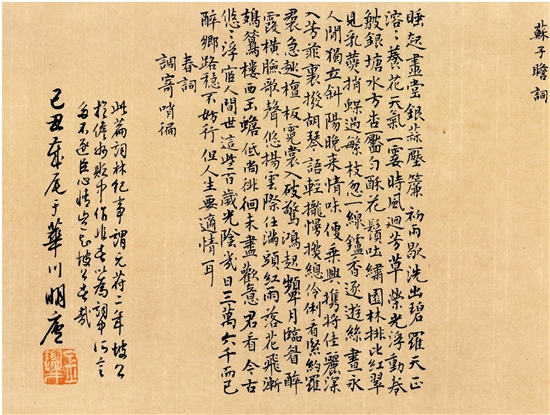 蘇子瞻詞
睡起畫堂銀蒜壓簾初雨歇洗出碧羅天正
溶〻養花天氣一霎時風迴芳草榮光浮動卷
皴銀塘水方杏靨勻酥花鬚吐繡園林排比紅翠
見乳燕捎蝶過繁枝忽一線鑪香逐遊絲晝永
人閒獨立斜陽晚來情味便乘興攜將佳麗深
入芳菲裏撥胡琴語輕攏慢撚總伶俐看緊約羅
裙急趣檀板霓裳入破驚鴻起顰月臨眉醉
霞橫臉歌聲悠揚雲際任滿頭紅雨落花飛漸
鳷鵲樓西玉蟾低尚徘徊未盡歡意君看今古
悠〻浮宦人間世這些百歲光陰幾日三萬六千而已
醉鄉路穩不妨行但人生要適情耳
春詞
調寄哨徧
此篇詞林紀事謂元符二年坡公
於儋州
己丑歲尾于華川明廬